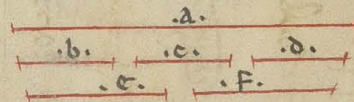 .a.
.b. .c. .d.
.e. .f.